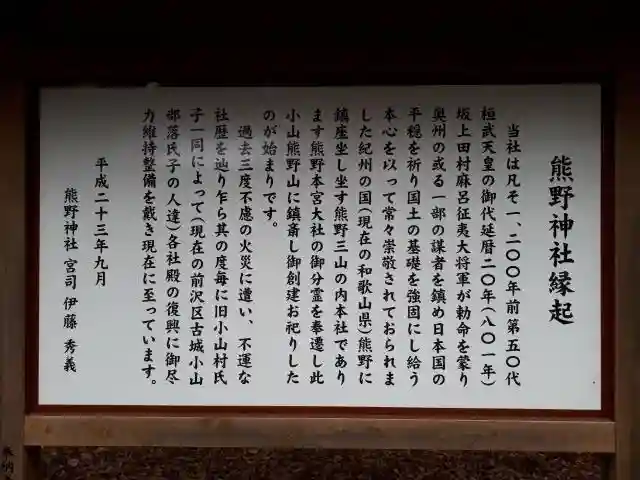 熊野神社縁起
当社は凡そ一、二〇〇年前第五〇代
桓武天皇の御代延暦二〇年(八〇一年)
坂上田村麻呂征夷大将軍が勅命を蒙り
奥州の或る一部の謀者を鎮め日本国の
平穏を祈り国土の基礎を強固にし給う
本心を以って常々崇敬されておられま
した紀州の国(現在の和歌山県)熊野に
鎮座坐し坐す熊野三山の内本社であり
ます熊野本宮大社の御分霊を奉遷し此
小山熊野山に鎮斎し御創建お祀りした
のが始まりです。
過去三度不慮の火災に遭い、不運な
社歴を辿り乍ら其の度毎に旧小山村氏
子一同によって(現在の前沢区古城小山
部落氏子の人達)各社殿の復興に御尽
力維持整備を戴き現在に至っています。
平成二十三年九月
熊野神社 宮司 伊藤 秀義
奉納